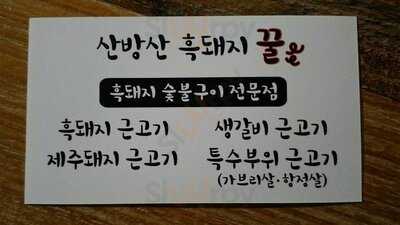 산방산 흑돼지 꿀꿀
흑돼지 숯불구이 전문점
흑돼지 근고기 생갈비 근고기
제주돼지 근고기 특수부위 근고기
(가브리살·항정살)